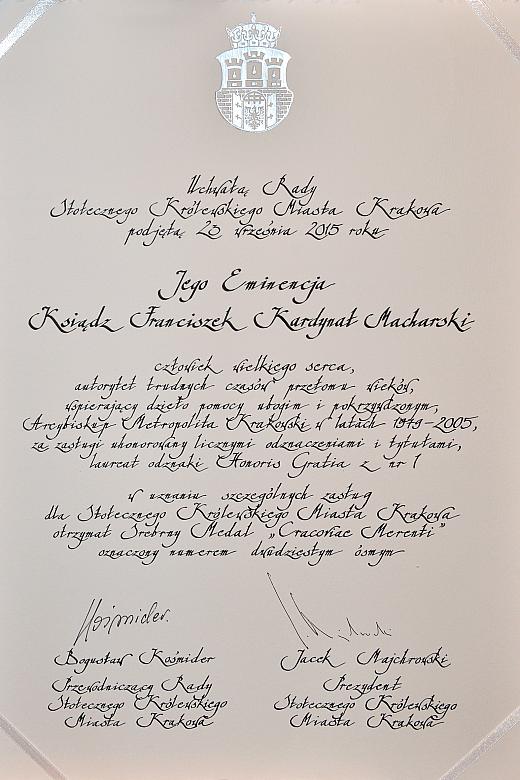 Uchwałą Rady
Stołecznego Królewskiego Miasta Krakowa
podjętą 23 września 2015 roku
Jego Eminencja
Ksiądz Franciszek Kardynał Macharski
człowiek wielkiego serca,
autorytet trudnych czasów przełomu wieków,
wspierający dzieło pomocy ubogim i pokrzywdzonym,
Arcybiskup Metropolita Krakowski w latach 1979-2005,
za zasługi uhonorowany licznymi odznaczeniami i tytułami,
laureat odznaki Honoris Gratia z nr 1
w uznaniu szczególnych zasług
dla Stołecznego Królewskiego Miasta Krakowa
otrzymał Srebrny Medal „Cracoviae Merenti”
oznaczony numerem dwudziestym ósmym
Kośmider.
Bogusław Kośmider
Przewodniczący Rady
Stołecznego Królewskiego
Miasta Krakowa
Jacek Majchrowski
Prezydent
Stołecznego Królewskiego
Miasta Krakowa